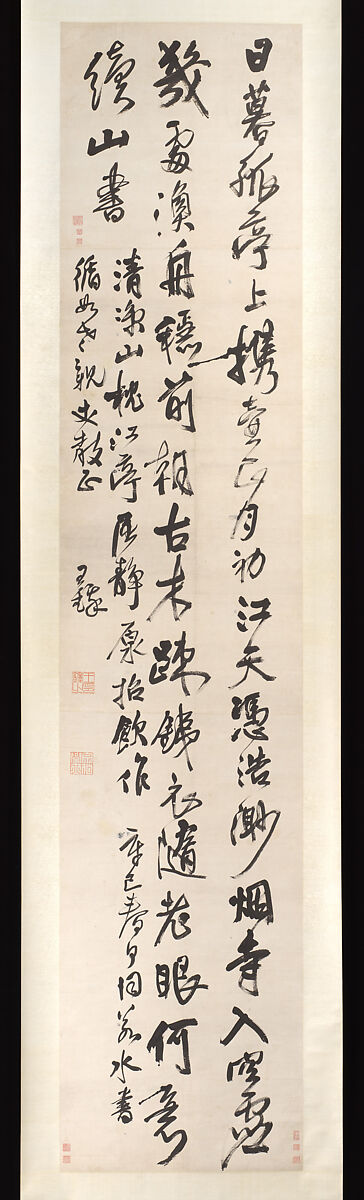 日暮孤亭上携壺正月初江天憑浩渺烟寺入空虛
幾處漁舟穩前朝古木疎鐵衣隨老眼何意
續山書
清涼山枕江亭靜原招飲作 辛巳春日同若水書
循如老親丈教正 王鐸